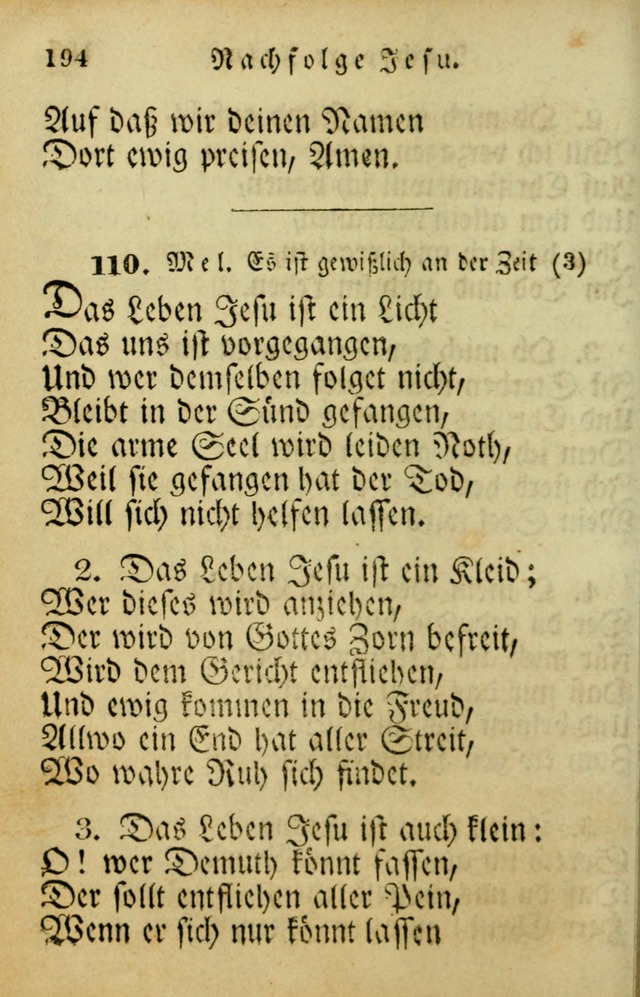 194 Nachfolge Jesu.
Auf daß wir deinen Namen
Dort ewig preisen, Amen.
110. Mel. Es ist gewißlich an der Zeit (3)
Das Leben Jesu ist ein Licht
Das uns ist vorgegangen,
Und wer demselben folget nicht,
Bleibt in der Sünd gefangen,
Die arme Seel wird leiden Noth,
Weil sie gefangen hat der Tod,
Will sich nicht helfen lassen.
2. Das Leben Jesu ist ein Kleid;
Wer dieses wird anziehen,
Der wird von Gottes Zorn befreit,
Wird dem Gericht entfliehen,
Und ewig kommen in die Freud,
Allwo ein End hat aller Streit,
Wo wahre Ruh sich findet.
3. Das Leben Jesu ist auch klein:
O! wer Demuth könnt fassen,
Der sollt entfliehen aller Pein,
Wenn er sich nur könnt lassen